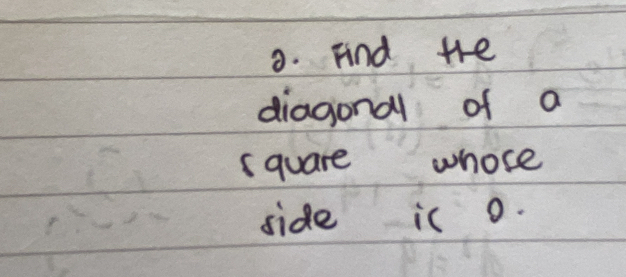 2. Find the
diagonal of a
square whose
side is 0.